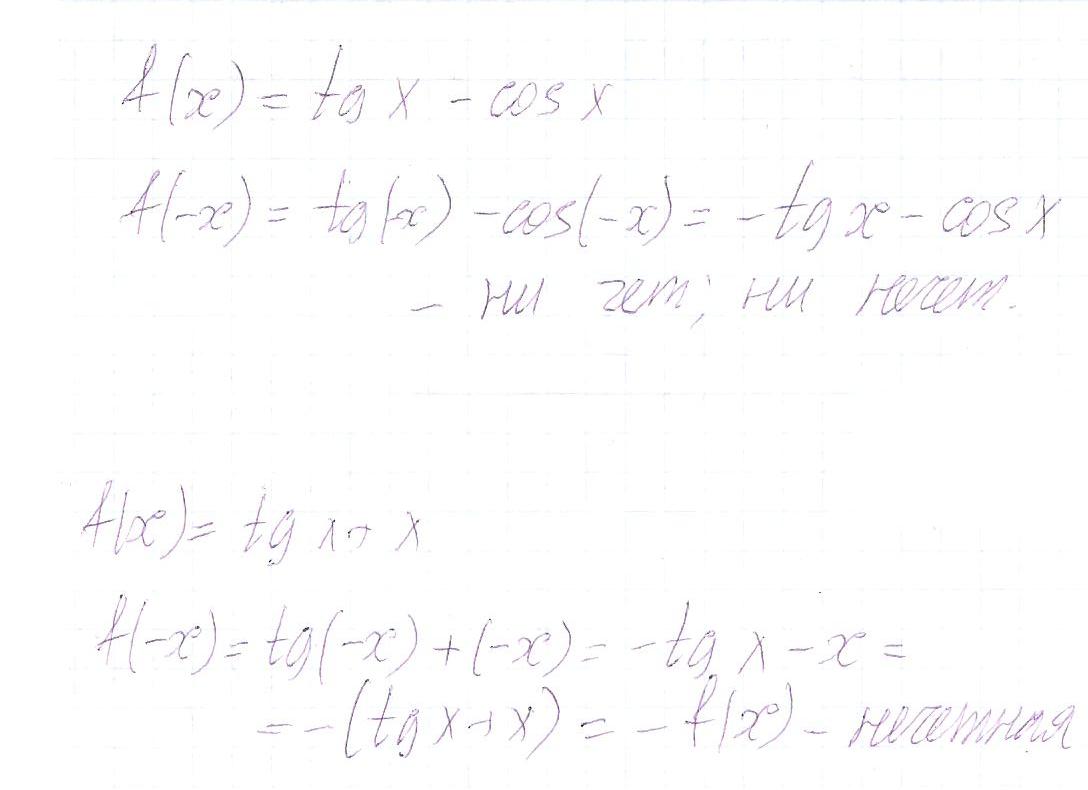 f(x) = tg x - cos x
f(-x) = tg(-x) - cos(-x) = -tg x - cos x
- ни чет; ни нечет.
f(x) = tg x + x
f(-x) = tg(-x) + (-x) = -tg x - x =
= -(tg x + x) = -f(x) - нечетная